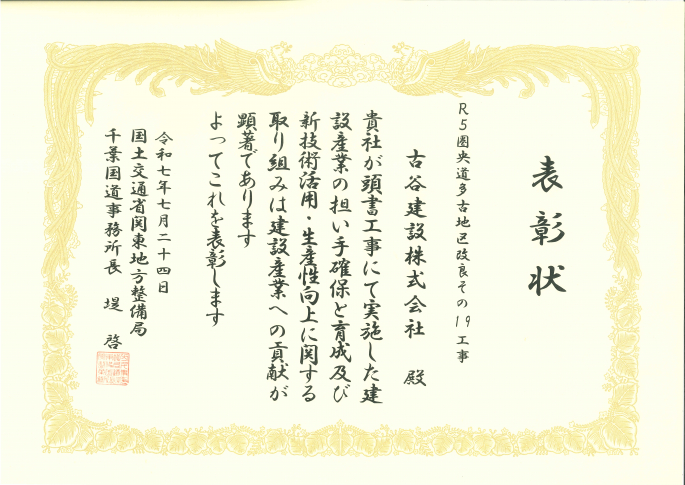 表彰状
R5圏央道多古地区改良その19工事
古谷建設株式会社 殿
貴社が頭書工事にて実施した建
設産業の担い手確保と育成及び
新技術活用・生産性向上に関する
取り組みは建設産業への貢献が
顕著であります
よってこれを表彰します
令和七年七月二十四日
国土交通省関東地方整備局
千葉国道事務所長 堤 啓